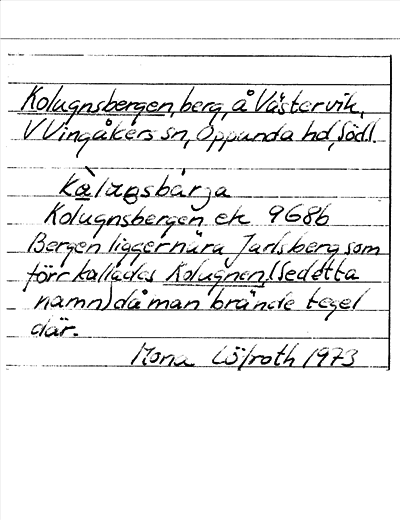 Kolugnsbergen, berg, å Västervik,
V Vingåkers sn, Oppunda hd, Södl.
Kolugnsbergen ek 9686
Bergen ligger nära Jarlsberg som
förr kallades Kolugnen, (se detta
namn) då man brände tegel
där.
Mona Löfroth 1973